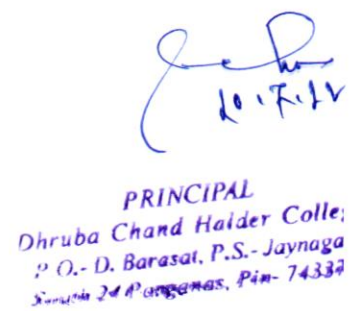 20.7.22
PRINCIPAL
Dhruba Chand Halder Colle
P.O.- D. Barasat, P.S.- Jaynaga
South 24 Parganas, Pin- 7433